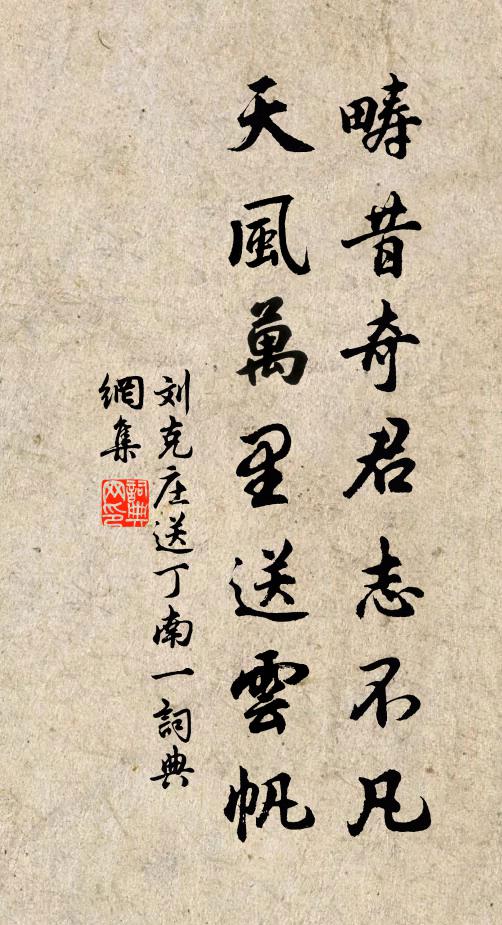 疇昔奇君志不凡
天風萬里送雲帆
刘克庄送丁南一詞典
網集
詞典網印